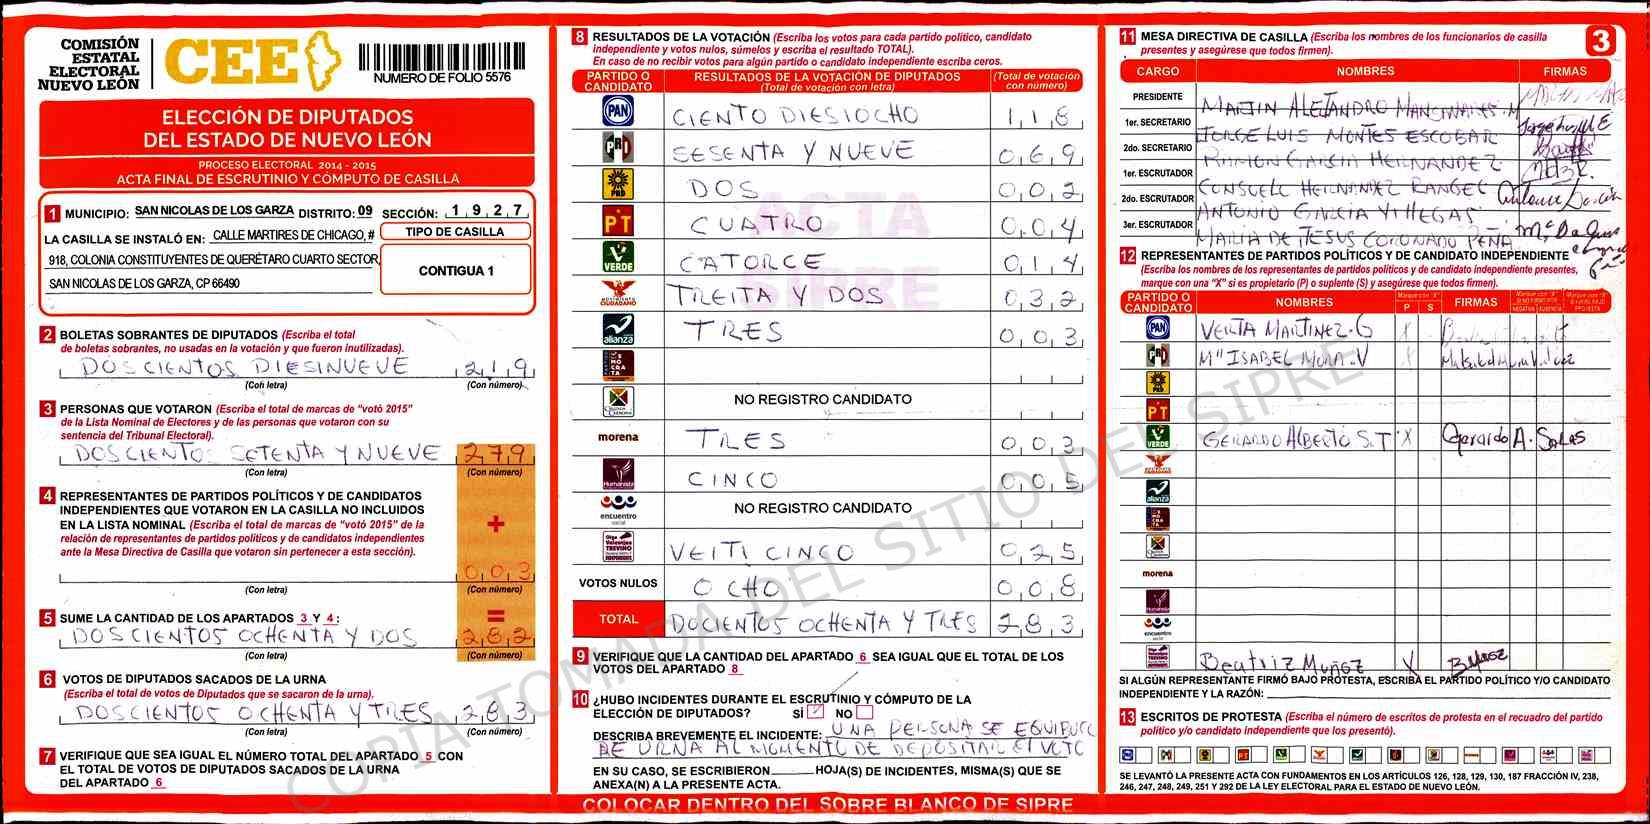 COMISIÓN
ESTATAL
ELECTORAL
NUEVO LEÓN
CEE
NUMERO DE FOLIO 5576
ELECCIÓN DE DIPUTADOS
DEL ESTADO DE NUEVO LEÓN
PROCESO ELECTORAL 2014 - 2015
ACTA FINAL DE ESCRUTINIO Y CÓMPUTO DE CASILLA
1 MUNICIPIO: SAN NICOLAS DE LOS GARZA DISTRITO: 09 SECCIÓN: 1927
LA CASILLA SE INSTALÓ EN: CALLE MARTIRES DE CHICAGO, #
918, COLONIA CONSTITUYENTES DE QUERÉTARO CUARTO SECTOR,
SAN NICOLAS DE LOS GARZA, CP 66490
TIPO DE CASILLA
CONTIGUA 1
2 BOLETAS SOBRANTES DE DIPUTADOS (Escriba el total
de boletas sobrantes, no usadas en la votación y que fueron inutilizadas).
DOSCIENTOS DIESINUEVE 219
(Con letra) (Con número)
3 PERSONAS QUE VOTARON (Escriba el total de marcas de “votó 2015”
de la Lista Nominal de Electores y de las personas que votaron con su
sentencia del Tribunal Electoral).
DOSCIENTOS SETENTA Y NUEVE 279
(Con letra) (Con número)
4 REPRESENTANTES DE PARTIDOS POLÍTICOS Y DE CANDIDATOS
INDEPENDIENTES QUE VOTARON EN LA CASILLA NO INCLUIDOS
EN LA LISTA NOMINAL (Escriba el total de marcas de “votó 2015” de la
relación de representantes de partidos políticos y de candidatos independientes
ante la Mesa Directiva de Casilla que votaron sin pertenecer a esta sección).
+
003
(Con letra) (Con número)
5 SUME LA CANTIDAD DE LOS APARTADOS 3 Y 4: =
DOSCIENTOS OCHENTA Y DOS 282
(Con letra) (Con número)
6 VOTOS DE DIPUTADOS SACADOS DE LA URNA
(Escriba el total de votos de Diputados que se sacaron de la urna).
DOSCIENTOS OCHENTA Y TRES 283
(Con letra) (Con número)
7 VERIFIQUE QUE SEA IGUAL EL NÚMERO TOTAL DEL APARTADO 5 CON
EL TOTAL DE VOTOS DE DIPUTADOS SACADOS DE LA URNA
DEL APARTADO 6
8 RESULTADOS DE LA VOTACIÓN (Escriba los votos para cada partido político, candidato
independiente y votos nulos, súmelos y escriba el resultado TOTAL).
En caso de no recibir votos para algún partido o candidato independiente escriba ceros.
PARTIDO O CANDIDATO RESULTADOS DE LA VOTACIÓN DE DIPUTADOS (Total de votación con letra) (Total de votación con número)
PAN CIENTO DIESIOCHO 118
PRI SESENTA Y NUEVE 069
PRD DOS 002
PT CUATRO 004
VERDE CATORCE 014
MOVIMIENTO CIUDADANO TREITA Y DOS 032
alianza TRES 003
NO REGISTRO CANDIDATO
morena TRES 003
Humanista CINCO 005
encuentro social NO REGISTRO CANDIDATO
VEITI CINCO 025
VOTOS NULOS OCHO 008
TOTAL DOCIENTOS OCHENTA Y TRES 283
ACTA
SIPRE
9 VERIFIQUE QUE LA CANTIDAD DEL APARTADO 6 SEA IGUAL QUE EL TOTAL DE LOS
VOTOS DEL APARTADO 8
10 ¿HUBO INCIDENTES DURANTE EL ESCRUTINIO Y CÓMPUTO DE LA
ELECCIÓN DE DIPUTADOS? SÍ NO
DESCRIBA BREVEMENTE EL INCIDENTE: UNA PERSONA SE EQUIVOCO
DE URNA AL MOMENTO DE DEPOSITAR EL VOTO
EN SU CASO, SE ESCRIBIERON HOJA(S) DE INCIDENTES, MISMA(S) QUE SE
ANEXA(N) A LA PRESENTE ACTA.
COLOCAR DENTRO DEL SOBRE BLANCO DE SIPRE
3
11 MESA DIRECTIVA DE CASILLA (Escriba los nombres de los funcionarios de casilla
presentes y asegúrese que todos firmen).
CARGO NOMBRES FIRMAS
PRESIDENTE MARTIN ALEJANDRO
1er. SECRETARIO JORGE LUIS MONTES ESCOBAR
2do. SECRETARIO RAMON GARCIA HERNANDEZ
1er. ESCRUTADOR CONSUELO HERNANDEZ RANGEL
2do. ESCRUTADOR ANTONIO GARCIA VILLEGAS
3er. ESCRUTADOR MARIA DE JESUS CORONADO PEÑA
12 REPRESENTANTES DE PARTIDOS POLÍTICOS Y DE CANDIDATO INDEPENDIENTE
(Escriba los nombres de los representantes de partidos políticos y de candidato independiente presentes,
marque con una “X” si es propietario (P) o suplente (S) y asegúrese que todos firmen).
PARTIDO O CANDIDATO NOMBRES Marque con "X" P S FIRMAS
PAN MARTINEZ G X
PRI Mª ISABEL MORA V X
PRD
PT
VERDE GERARDO ALBERTO S.T X Gerardo A. Salas
alianza
morena
Humanista
encuentro social
Beatriz Muñoz X
SI ALGÚN REPRESENTANTE FIRMÓ BAJO PROTESTA, ESCRIBA EL PARTIDO POLÍTICO Y/O CANDIDATO
INDEPENDIENTE Y LA RAZÓN:
13 ESCRITOS DE PROTESTA (Escriba el número de escritos de protesta en el recuadro del partido
político y/o candidato independiente que los presentó).
SE LEVANTÓ LA PRESENTE ACTA CON FUNDAMENTOS EN LOS ARTÍCULOS 126, 128, 129, 130, 187 FRACCIÓN IV, 238,
246, 247, 248, 249, 251 Y 292 DE LA LEY ELECTORAL PARA EL ESTADO DE NUEVO LEÓN.
COPIA TOMADA DEL SITIO DEL SIPRE